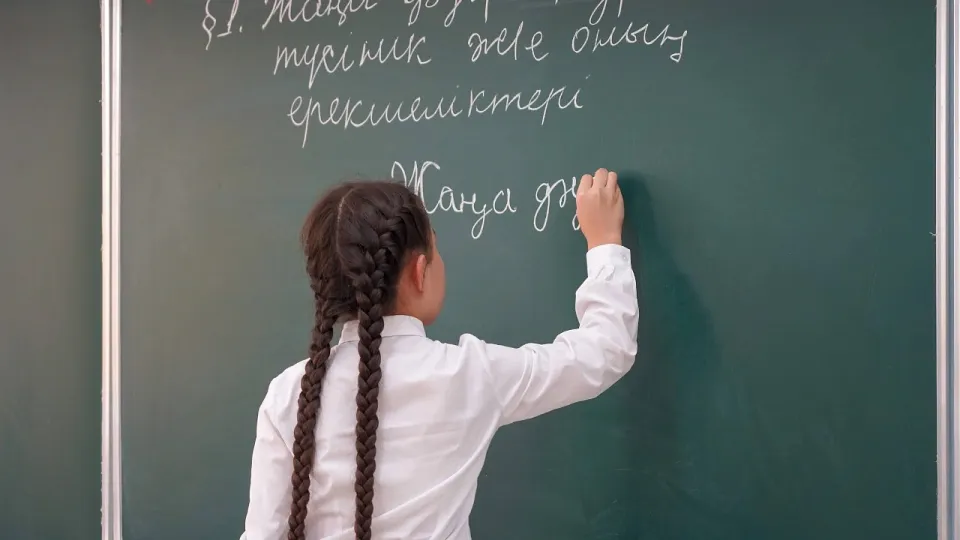 §1. Жаңа дәуір
түсінік және оның
ерекшеліктері
Жаңа дәу